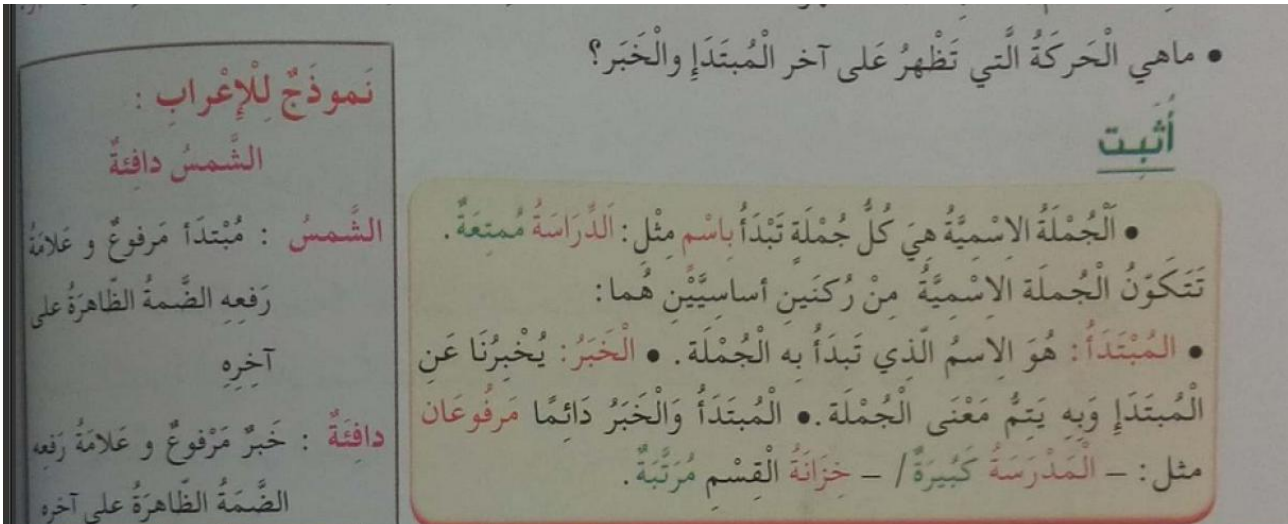 • ماهي الْحَركَةُ الَّتي تَظْهرُ عَلى آخر الْمُبتَدَإِ والْخَبَر؟
أُثبِت
• اَلْجُمْلَةُ الاِسْمِيَّةُ هِيَ كُلُّ جُمْلَةٍ تَبْدَأُ بِاسْم مِثْل: اَلدِّرَاسَةُ مُمتِعَةٌ.
تَتَكَوَّنُ الْجُملَة الاِسْمِيَّةُ مِنْ رُكنَينِ أساسِيَّيْنِ هُما:
• المُبْتَدَأُ: هُوَ الاِسمُ الّذِي تَبدَأُ بِه الْجُمْلَة. • الْخَبَرُ: يُخْبِرُنَا عَنِ
الْمُبتَدَإِ وَبِهِ يَتِمُّ مَعْنَى الْجُمْلَة. • الْمُبتَدَأُ وَالْخَبَرُ دَائِمًا مَرفُوعَان
مثل: – الْمَدْرَسَةُ كَبُيرَةٌ / – خِزَانَةُ الْقِسْمِ مُرَتَّبَةٌ.
نَموذَجٌ لِلْإِعْرابِ :
الشَّمسُ دافِئةٌ
الشَّمسُ : مُبْتدَأ مَرفوعٌ و عَلامَةُ
رَفعِهِ الضَّمةُ الظَّاهرَةُ على
آخِرِهِ
دافِئَةٌ : خَبرٌ مَرْفوعٌ و عَلامَةُ رَفعِه
الضَّمَةُ الظَّاهرَةُ على آخره